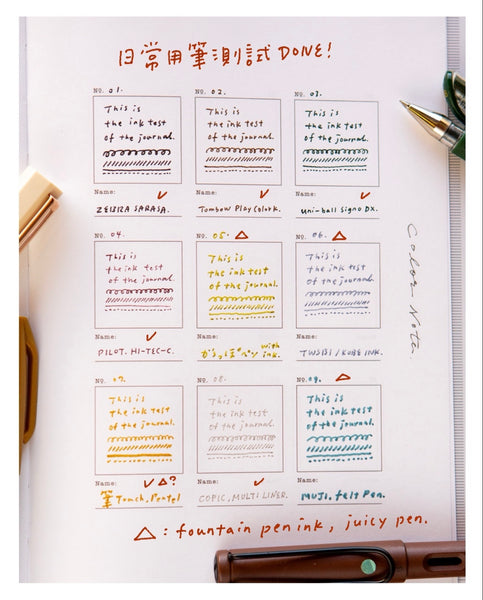 日常用筆測試 DONE!
No. 01.
This is
the ink test
of the journal.
Name: ✓
ZEBRA SARASA.
No. 02.
This is
the ink test
of the journal.
Name: ✓
Tombow Play Color K.
No. 03.
This is
the ink test
of the journal.
Name: ✓
uni-ball Signo DX.
No. 04.
This is
the ink test
of the journal.
Name: ✓
PILOT. HI-TEC-C.
No. 05. △
This is
the ink test
of the journal.
Name:
からっぽペン with ink.
No. 06. △
This is
the ink test
of the journal.
Name:
TWSBI / KOBE INK.
No. 07.
This is
the ink test
of the journal.
Name: ✓ △?
筆 Touch, Pentel
No. 08.
This is
the ink test
of the journal.
Name: ✓
COPIC, MULTI LINER.
No. 09. △
This is
the ink test
of the journal.
Name:
MUJI. felt Pen.
Color Note.
△ : fountain pen ink, juicy pen.